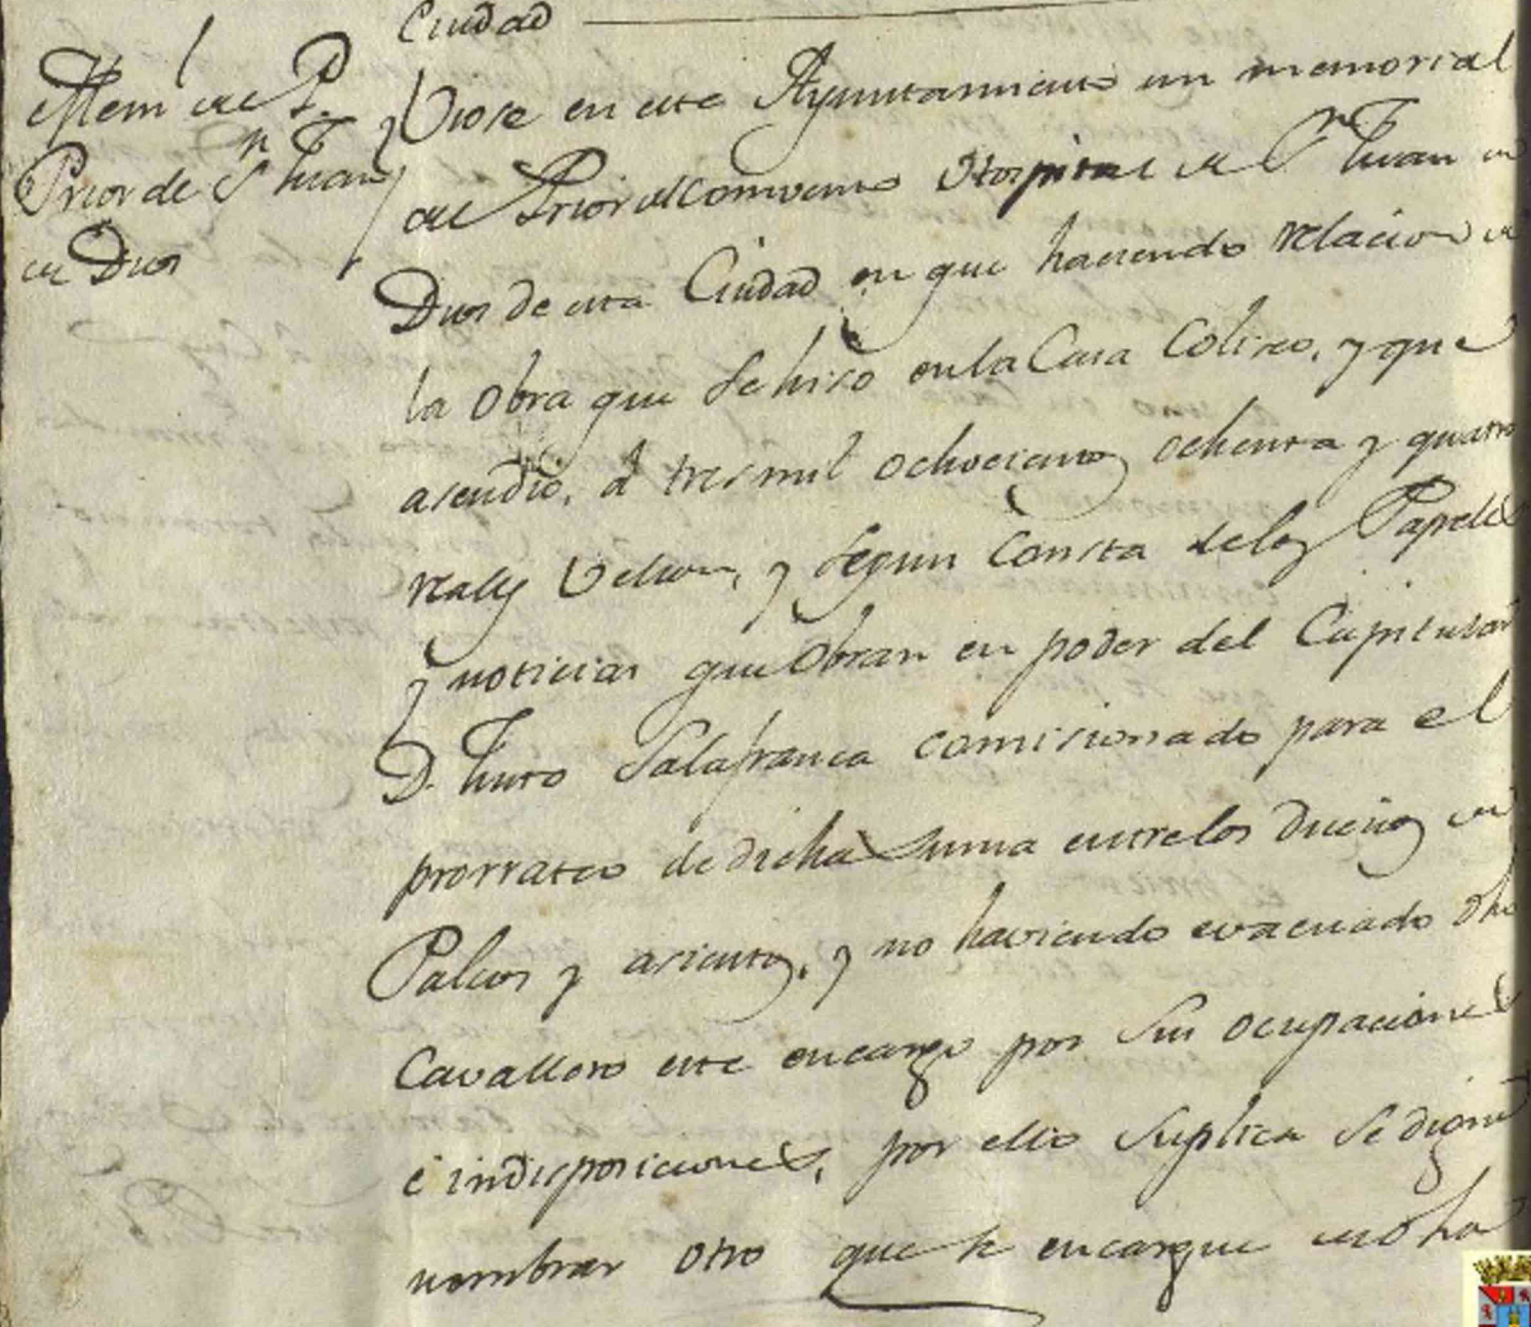 Ciudad
Mem. de P.
Prior de Sn. Juan
de Dios
Viose en este Ayuntamiento un memorial
del Prior del Convento Hospital de Sn. Juan de
Dios de esta Ciudad en que haciendo relacion de
la obra que se hizo en la Casa Coliseo, y que
asendio, á tres mil ochocientos ochenta y quatro
reales Vellon, y segun consta de los Papeles
y noticias que obran en poder del Capitular
D. Justo Salafranca comisionado para el
prorrateo de dicha suma entre los dueños de
Palcos y asientos, y no haviendo evacuado dho
Cavallero este encargo por sus ocupaciones
é indisposiciones, por ello suplica se digne
nombrar otro que se encargue en dha